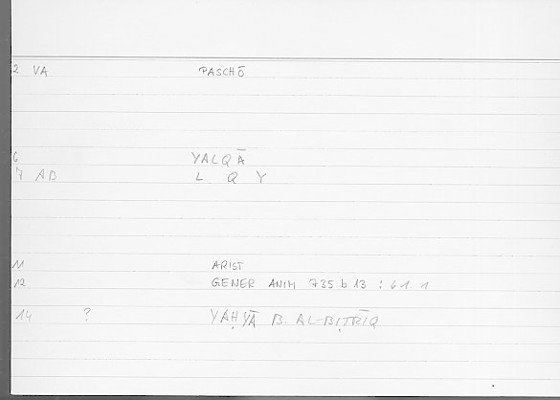 2 VA PASCHŌ
6 YALQĀ
7 AD L Q Y
11 ARIST
12 GENER ANIM 735 b 13 : 61. 1
14 ? YAḤYĀ B. AL-BIṬRĪQ